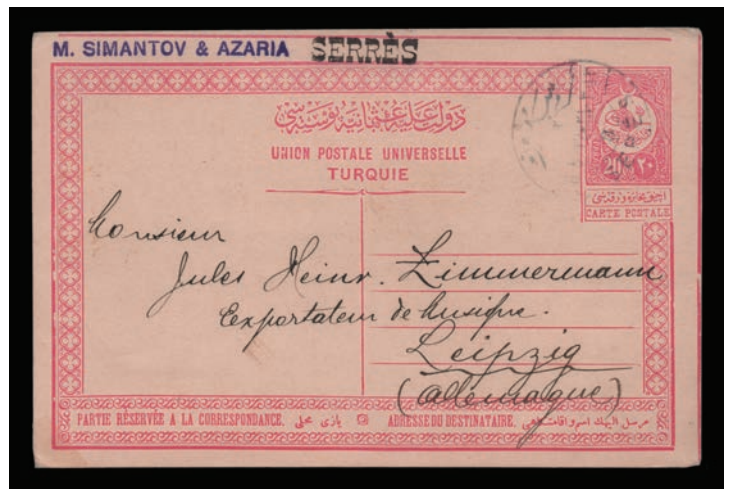 M. SIMANTOV & AZARIA SERRÈS
دولت عليه عثمانيه پوسته سى
UNION POSTALE UNIVERSELLE
TURQUIE
٢٠ 20
CARTE POSTALE
Monsieur
Jules Heinr. Zimmermann
Exportateur de Musique.
Leipzig
(Allemagne)
PARTIE RÉSERVÉE A LA CORRESPONDANCE. يازى محلى ADRESSE DU DESTINATAIRE.